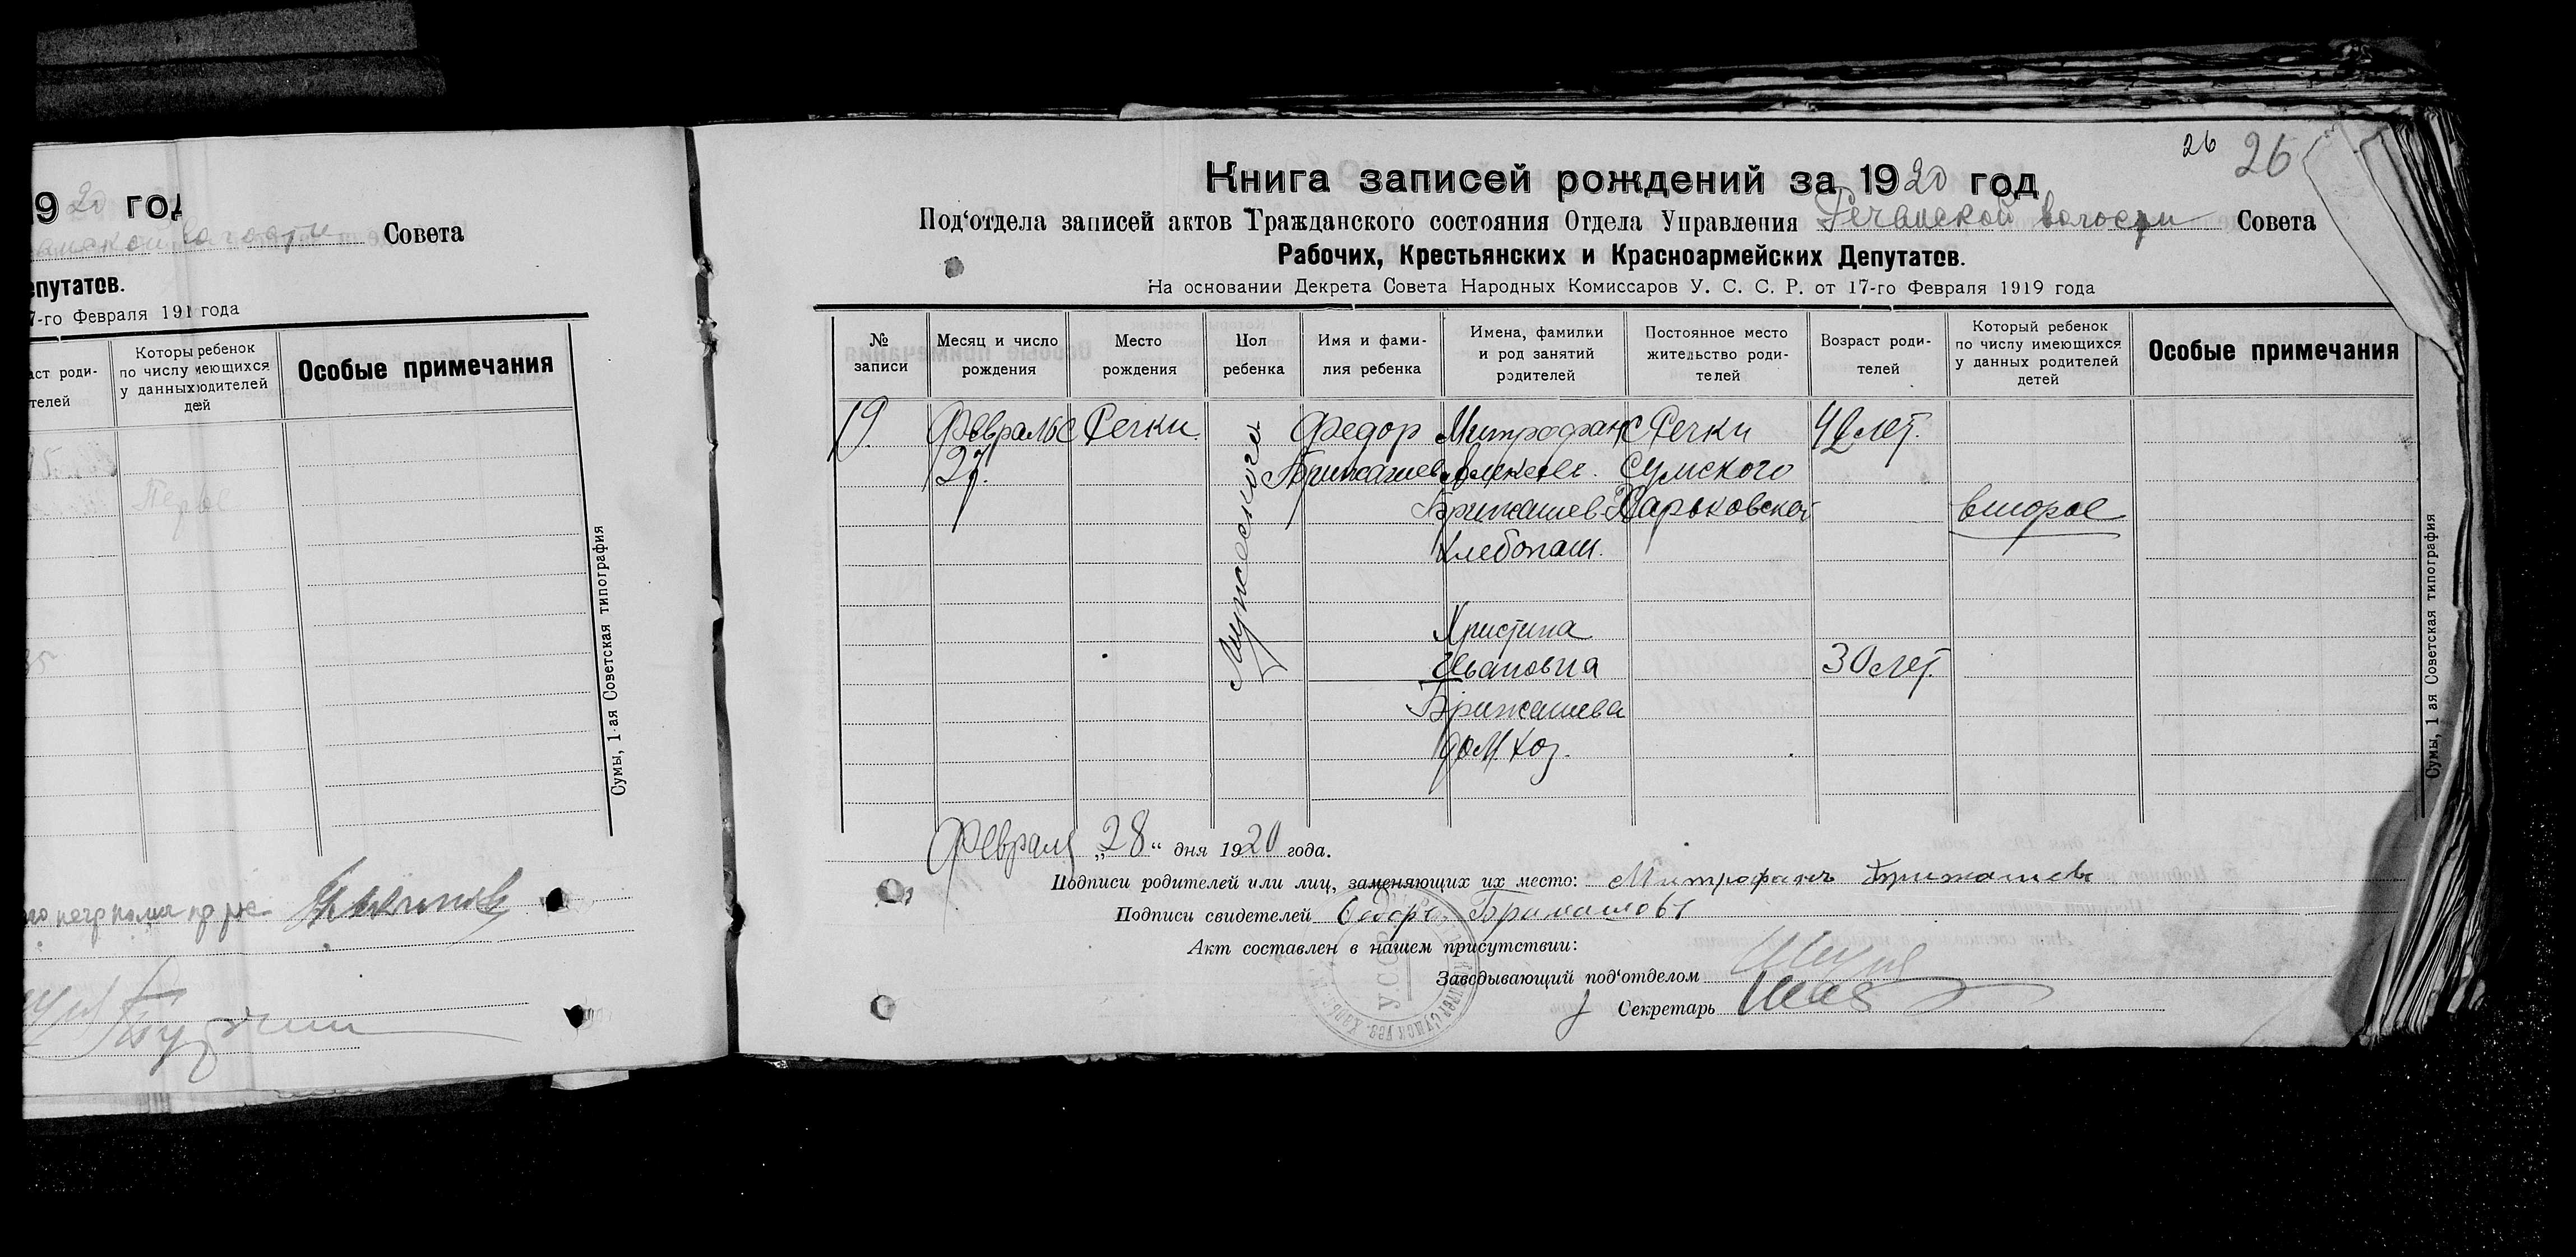 19 20 год
Совета
епутатов.
7-го Февраля 191 года
аст роди-
телей
Которы ребенок
по числу меющихся
у данных одителей
дей
Особые примечания
Сумы, 1-ая Советская типография
26 26
Книга записей рождений за 1920 год
Под'отдела записей актов Гражданского состояния Отдела Управления Речанской волости Совета
Рабочих, Крестьянских и Красноармейских Депутатов.
На основании Декрета Совета Народных Комиссаров У. С. С. Р. от 17-го Февраля 1919 года
№
записи
Месяц и число
рождения
Место
рождения
Пол
ребенка
Имя и фами-
лия ребенка
Имена, фамилии
и род занятий
родителей
Постоянное место
жительство роди-
телей
Возраст роди-
телей
Который ребенок
по числу имеющихся
у данных родителей
детей
Особые примечания
19.
Февраль
27.
с Речки.
Мужеского
Федор
Брижашев
Митрофан
Алексее.
Брижашев
Хлебопаш.
Христина
Ивановна
Брижашева
дом. хоз.
с Речки
Сумского
Харьковской
42 лет.
30 лет.
второе
Февраля „28“ дня 1920 года.
Подписи родителей или лиц, заменяющих их место: Митрофанъ Брижашевъ
Подписи свидетелей
Акт составлен в нашем присутствии:
Заведывающий под'отделом
Секретарь
УССР
Сумы, 1-ая Советская типография